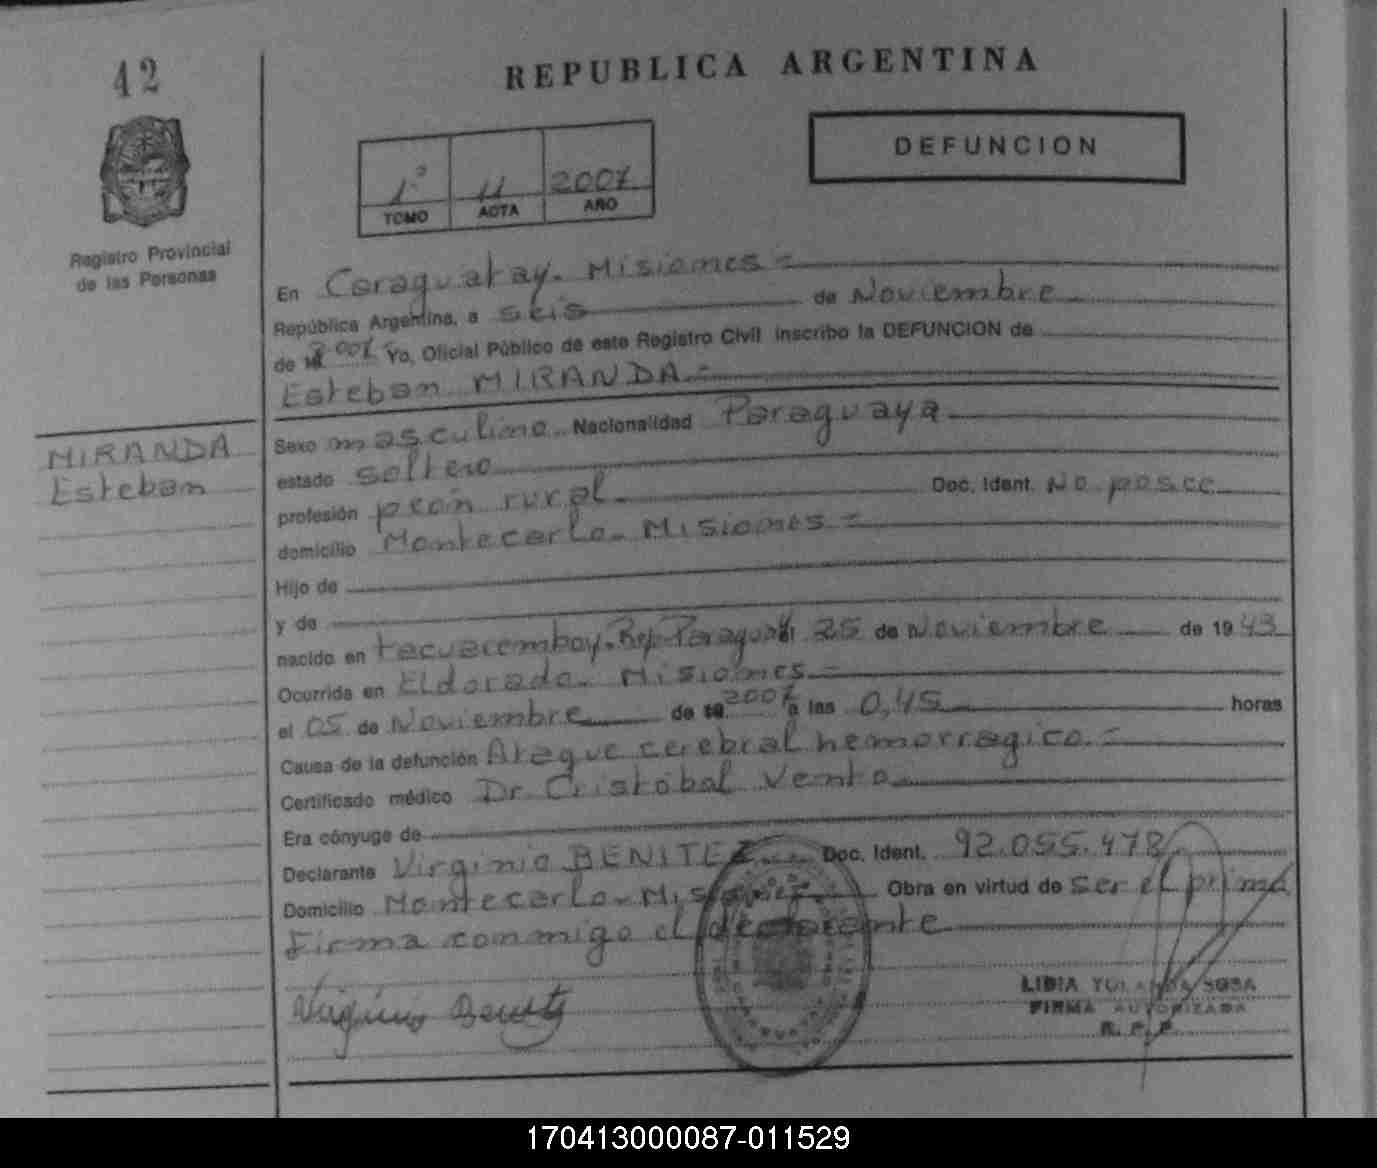 42
REPUBLICA ARGENTINA
DEFUNCION
1º 11 2007
TOMO ACTA AÑO
Registro Provincial
de las Personas
En Caraguatay - Misiones =
República Argentina, a seis de Noviembre
de 2007 Yo, Oficial Público de este Registro Civil inscribo la DEFUNCION de
Esteban MIRANDA =
MIRANDA
Esteban
Sexo masculino Nacionalidad Paraguaya
estado soltero
profesión peón rural Doc. Ident. No posee
domicilio Montecarlo - Misiones =
Hijo de
y de
nacido en tacuacemboy. Rep. Paraguay 25 de Noviembre de 1943
Ocurrida en Eldorado - Misiones =
el 05 de Noviembre de 2007 a las 0,45 horas
Causa de la defunción Ataque cerebral hemorragico =
Certificado médico Dr. Cristobal Vento
Era cónyuge de
Declarante Virginio BENITEZ Doc. Ident. 92.055.478
Domicilio Montecarlo - Misiones Obra en virtud de ser el primo
Firma conmigo el declarante
Virginio Benitez
LIDIA YOLANDA SOSA
FIRMA AUTORIZADA
R. P. P.
170413000087-011529